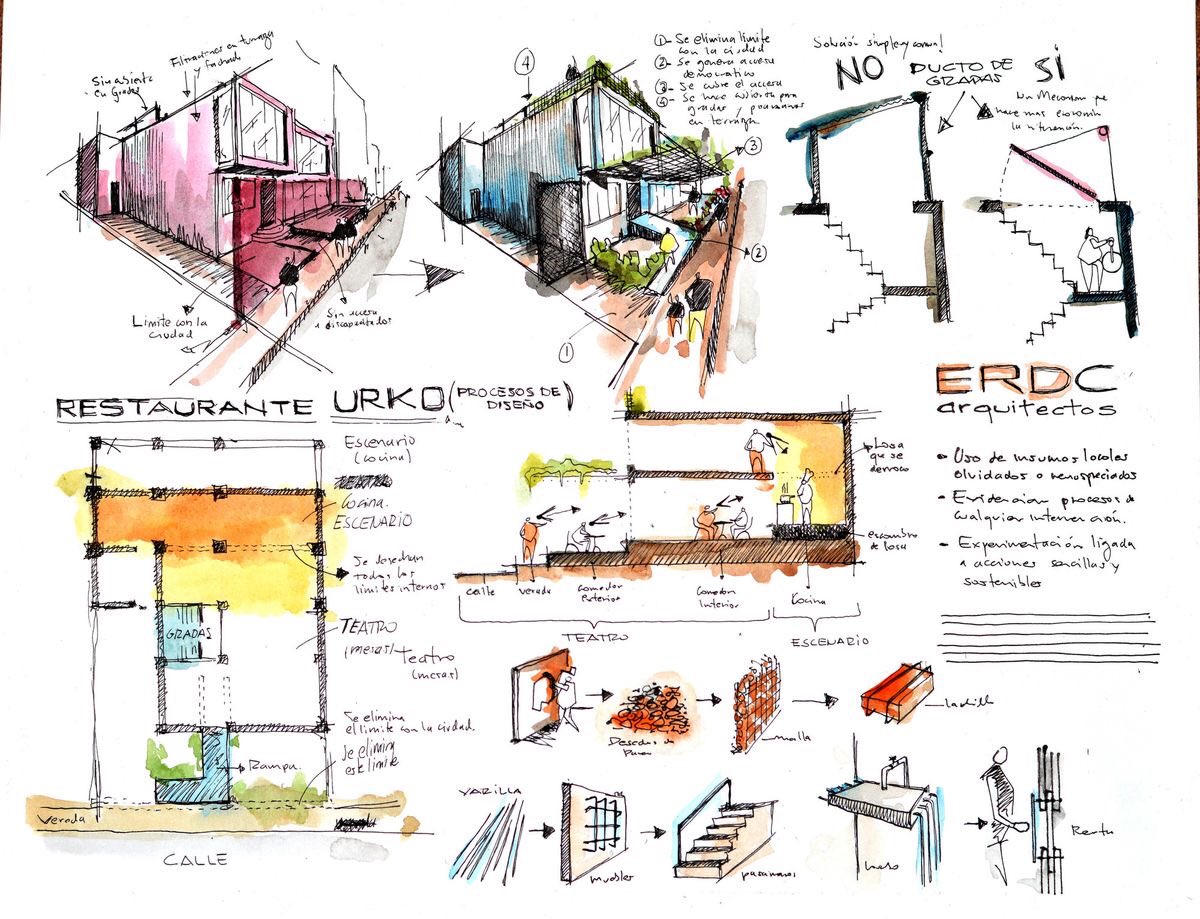 Sin abierta
en Gradas
Filtraciones en terraza
y fachada
Limite con la
ciudad
Sin acceso
a discapacitados
4
3
2
1
①- Se elimina limite
con la ciudad
②- Se genera acceso
democratico
③- Se cubre el acceso
④- Se hace cubierta para
gradas y pasamanos
en terraza
Solución simple y común!
NO
DUCTO DE
GRADAS
SI
Un Mecanismo que
hace mas economica
la intención.
RESTAURANTE URKO (PROCESOS DE
DISEÑO)
ERDC
arquitectos
• Uso de insumos locales
olvidados o menospreciados
- Evidenciar procesos de
cualquier intervención.
- Experimentación ligada
a acciones sencillas y
sostenibles
Escenario
(cocina)
Cocina.
ESCENARIO
Se desechan
todos los
limites internos
TEATRO
(mesas)
Teatro
(mesas)
GRADAS
Se elimina
el limite con la ciudad.
Se elimina
este limite
Rampa.
Vereda
CALLE
Losa
que se
derroco
escombro
de losa
calle
vereda
comedor
exterior
Comedor
Interior
Cocina
TEATRO
ESCENARIO
Desechos de
Pared
malla
ladrillo
VARILLA
muebles
pasamanos